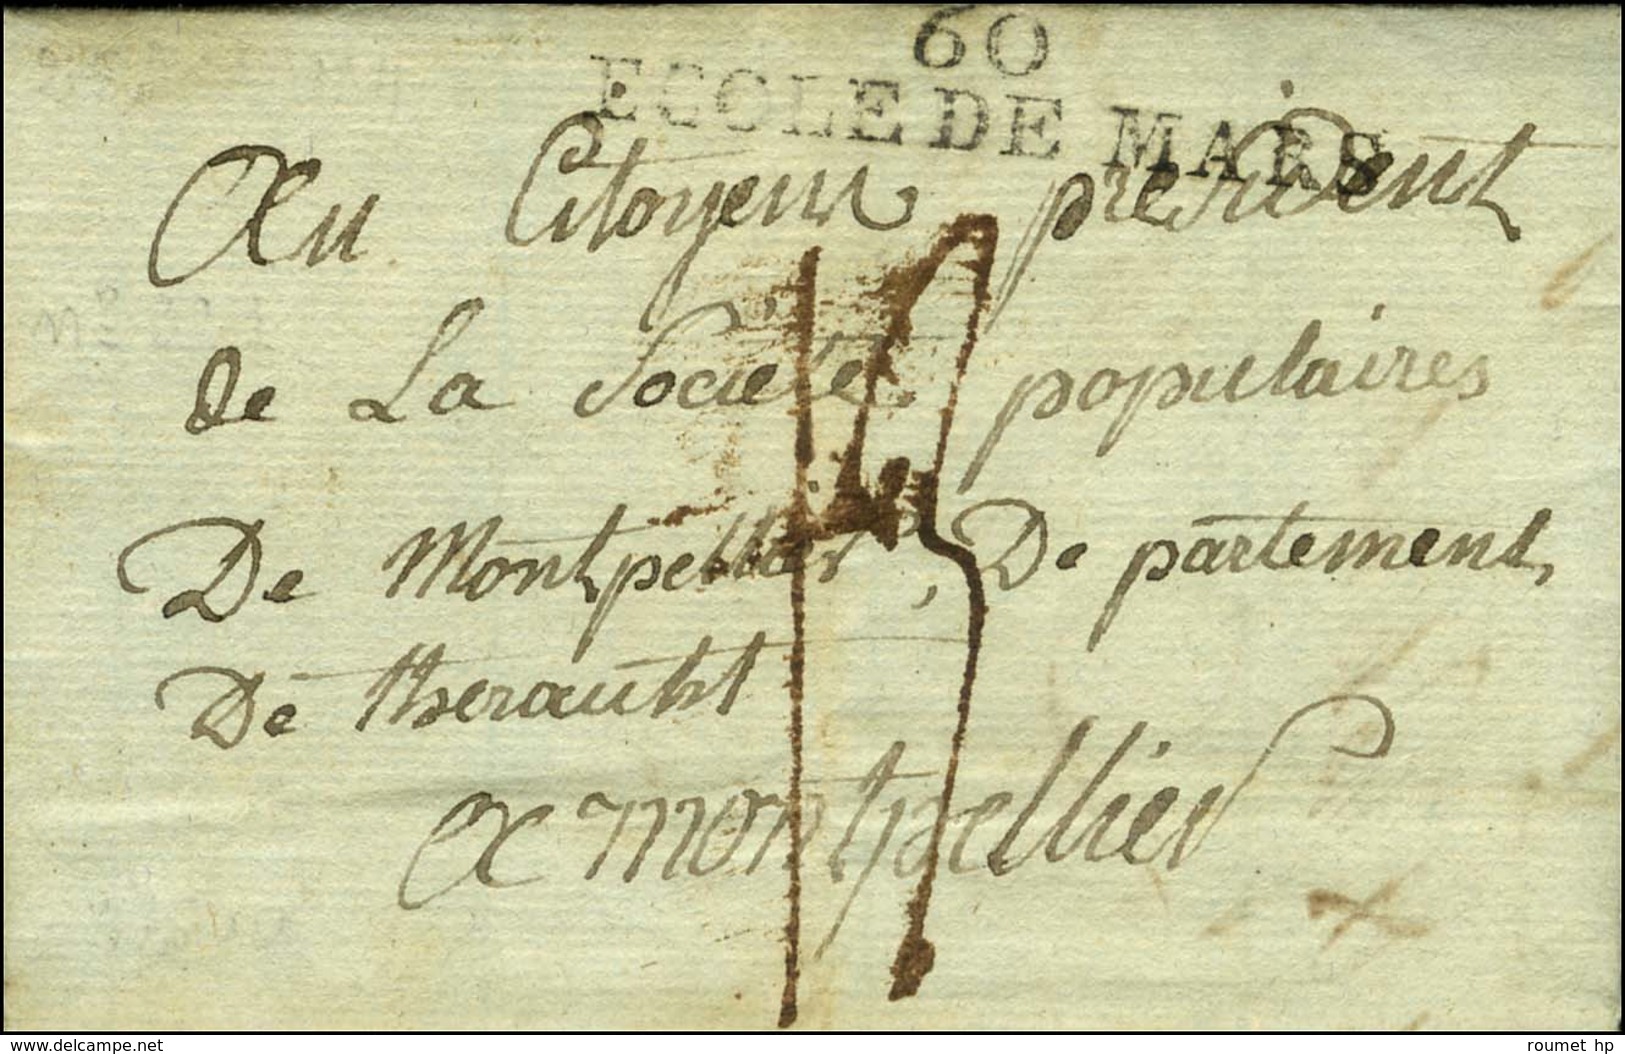 60
ECOLE DE MARS
Au Citoyen president
de La Societé populaires
De Montpellier, De partement
De therault
a montpellier
13
www.delcampe.net
roumet hp